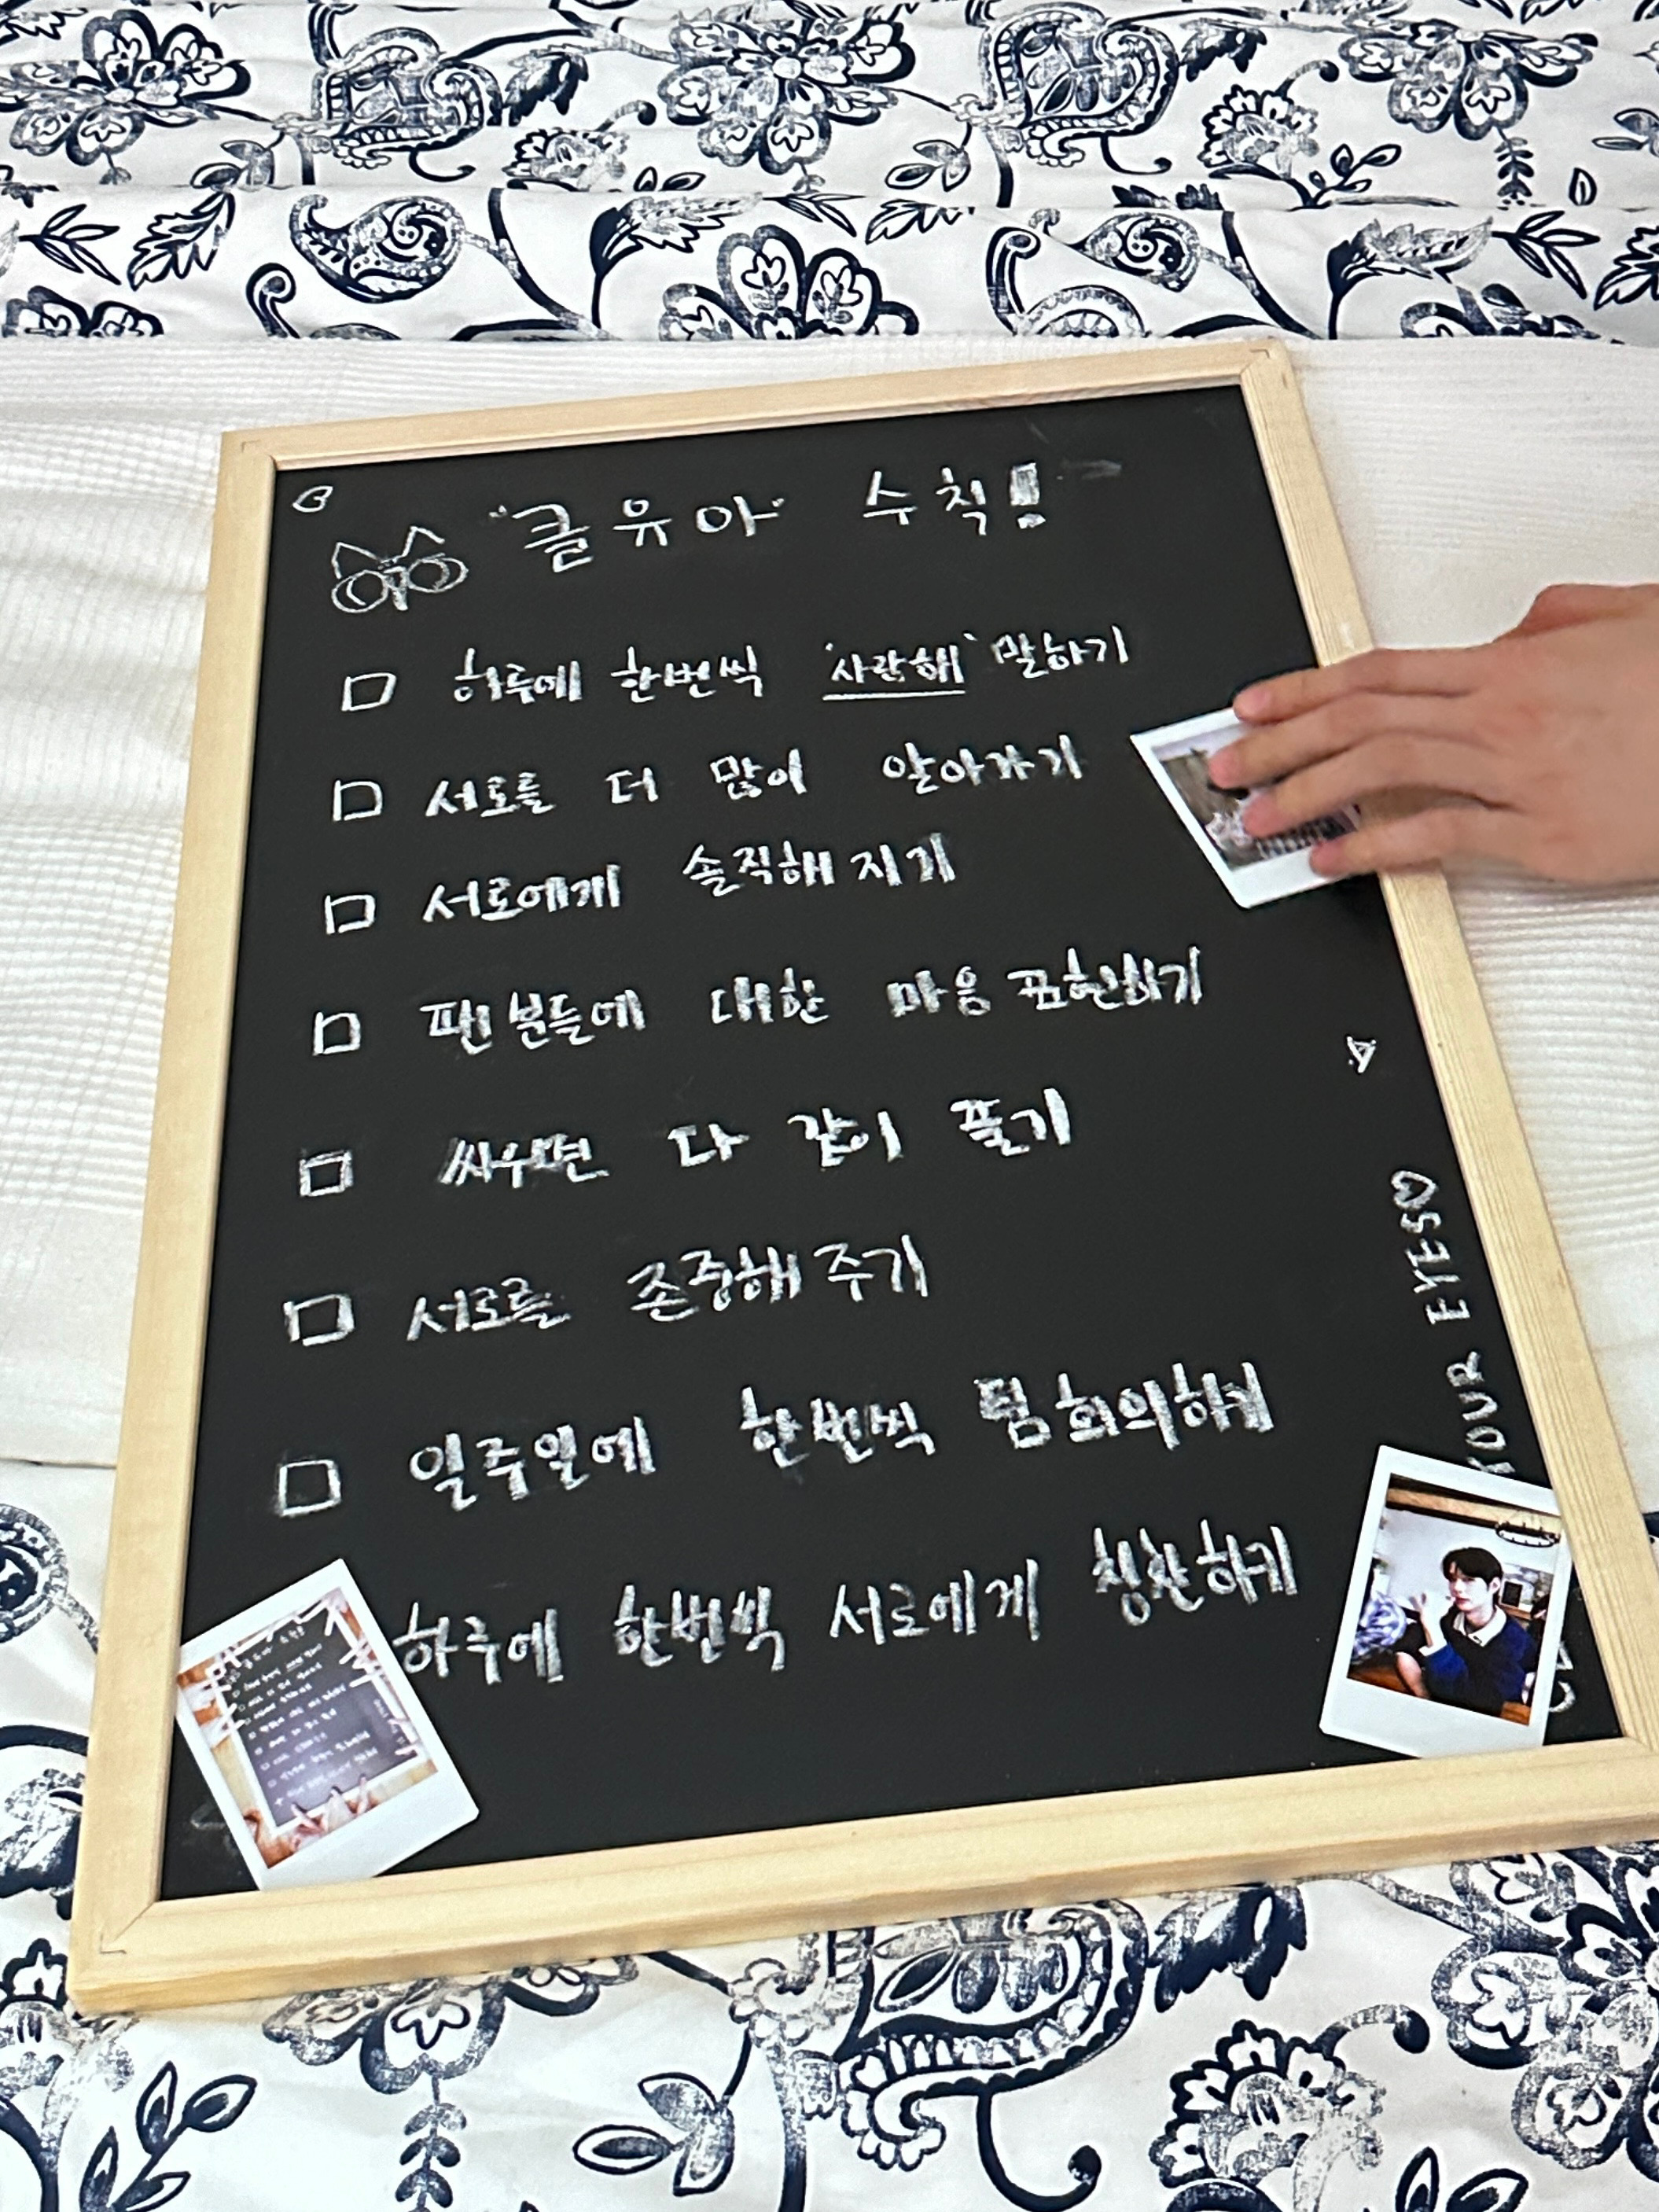 "클유아" 수칙!
하루에 한번씩 '사랑해' 말하기
서로를 더 많이 알아가기
서로에게 솔직해지기
팬분들에 대한 마음 표현하기
싸우면 다 같이 풀기
서로를 존중해주기
일주일에 한번씩 팀 회의하기
하루에 한번씩 서로에게 칭찬하기
YOUR EYES♡